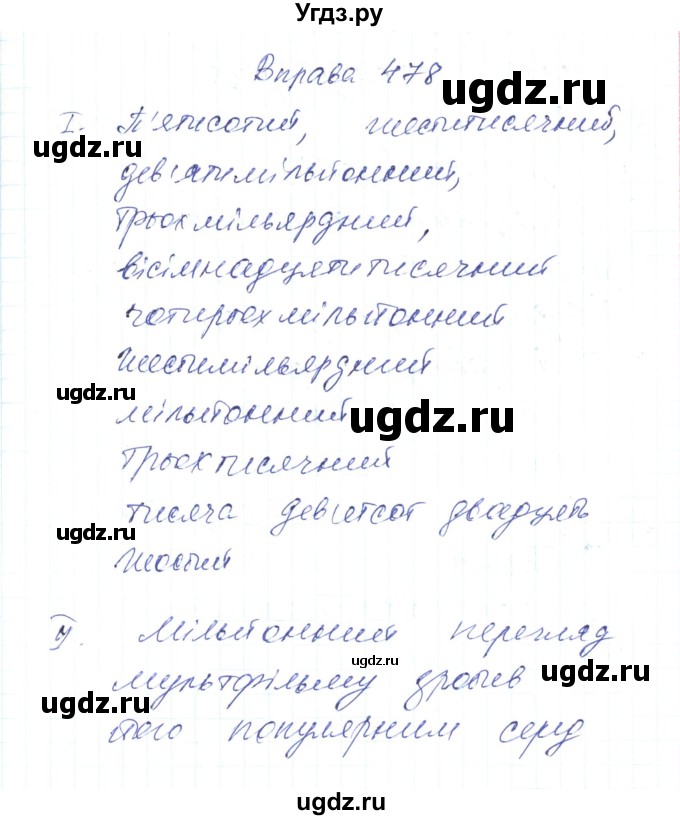 Угдз.ру
Вправа 478
ugdz.ru
I. П'ятисотий, шеститисячний,
ugdz.ru
ugdz.ru
дев'ятимільйонний,
трьохмільярдний,
вісімнадцятитисячний
чотирьохмільйонний
шестимільярдний
ugdz.ru
мільйонний
ugdz.ru
трьохтисячний
тисяча дев'ятсот двадцять
ugdz.ru
шостий
Мільйонний перегляд
ugdz.ru
мультфільму зробив
ugdz.ru
ugdz.ru
його популярним серед
ugdz.ru